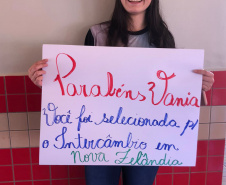 Parabéns Vania
Você foi selecionada p/
o Intercâmbio em
Nova Zelândia